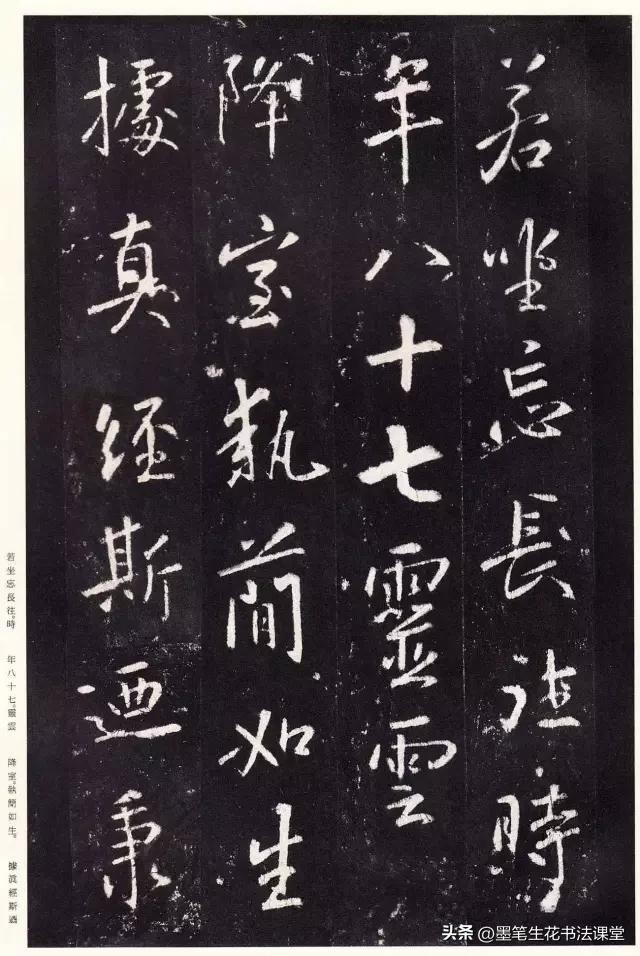 若坐忘長往時
年八十七靈雲
降室執簡如生
據真經斯迺秉
若坐忘長往。時　年八十七。靈雲　降室。執簡如生。　據眞經斯迺
头条 @墨笔生花书法课堂